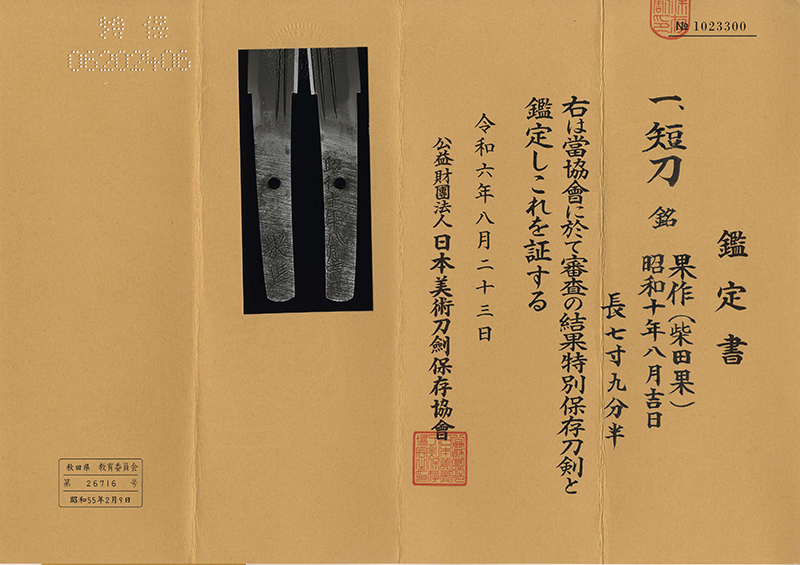 № 1023300
鑑定書
一、短刀 銘 果作(柴田果)
昭和十年八月吉日
長七寸九分半
右は當協會に於て審査の結果特別保存刀剣と
鑑定しこれを証する
令和六年八月二十三日
公益財團法人 日本美術刀劍保存協會
特保
06202406
昭和十年八月吉日
果作
秋田県 教育委員会
第 26716 号
昭和55年2月9日